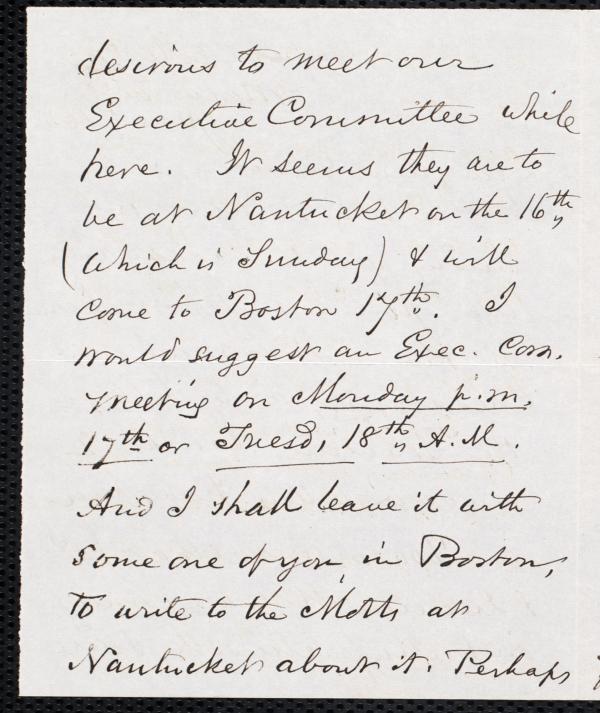 desirous to meet our
Executive Committee while
here. It seems they are to
be at Nantucket on the 16th,
(which is Sunday) & will
come to Boston 17th. I
would suggest an Exec. Com.
meeting on Monday p.m.
17th or Tuesd, 18th A.M.
And I shall leave it with
some one of you, in Boston,
to write to the Motts at
Nantucket about it. Perhaps